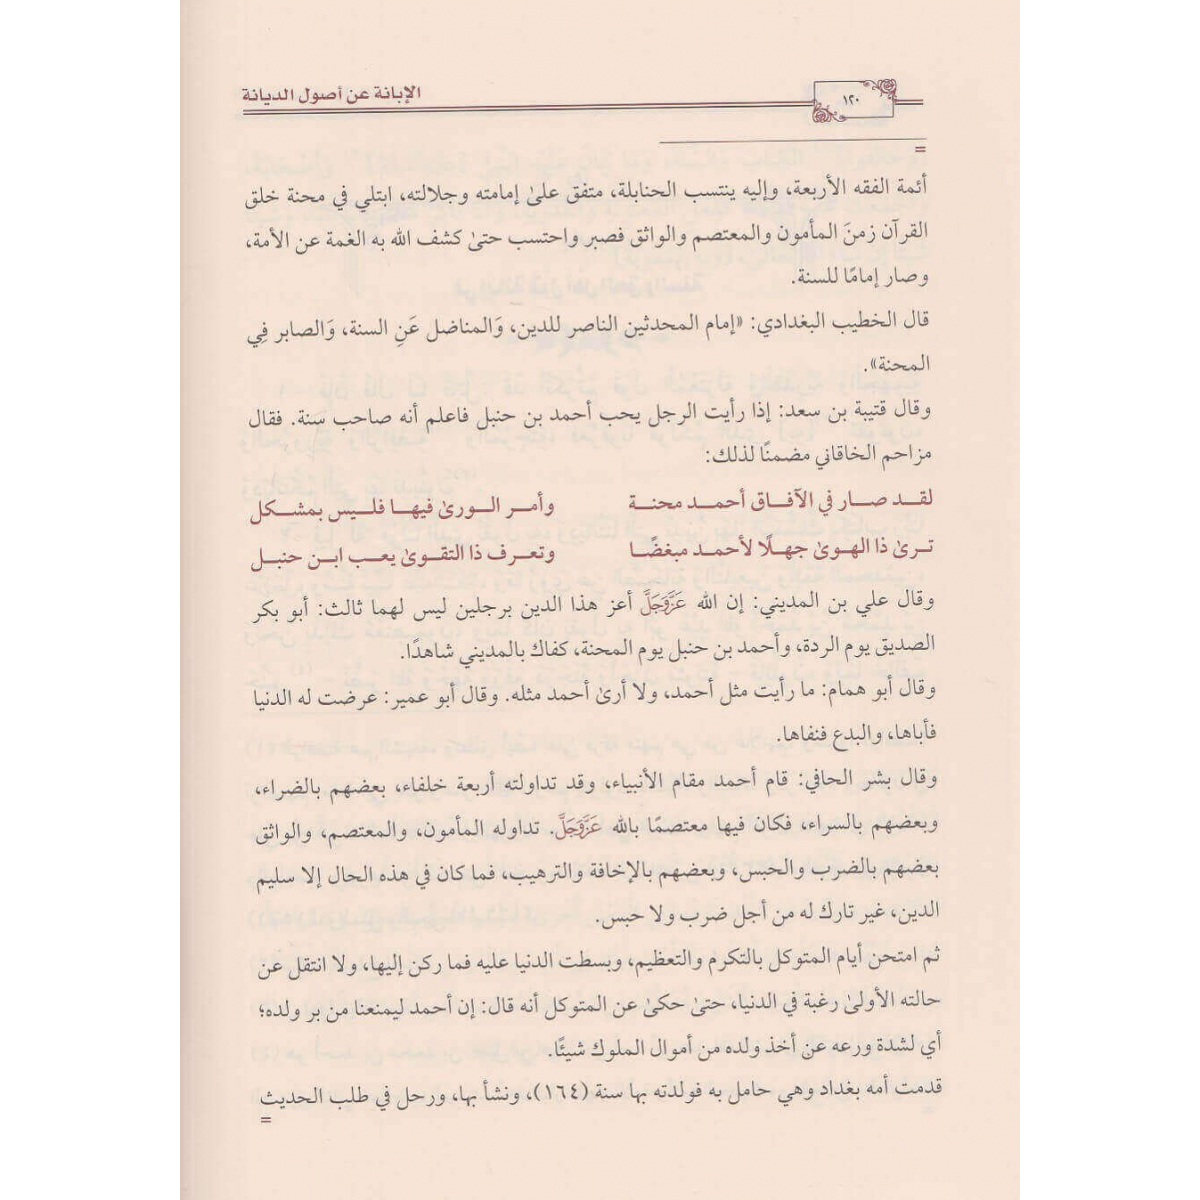 الإبانة عن أصول الديانة
١٢٠
=
أئمة الفقه الأربعة، وإليه ينتسب الحنابلة، متفق علىٰ إمامته وجلالته، ابتلي في محنة خلق
القرآن زمنَ المأمون والمعتصم والواثق فصبر واحتسب حتىٰ كشف الله به الغمة عن الأمة،
وصار إمامًا للسنة.
قال الخطيب البغدادي: «إمام المحدثين الناصر للدين، وَالمناضل عَنِ السنة، وَالصابر فِي
المحنة».
وقال قتيبة بن سعد: إذا رأيت الرجل يحب أحمد بن حنبل فاعلم أنه صاحب سنة. فقال
مزاحم الخاقاني مضمنًا لذلك:
لقد صار في الآفاق أحمد محنة وأمر الورىٰ فيها فليس بمشكل
ترىٰ ذا الهوىٰ جهلًا لأحمد مبغضًا وتعرف ذا التقوىٰ يعب ابن حنبل
وقال علي بن المديني: إن الله عَزَّوَجَلَّ أعز هذا الدين برجلين ليس لهما ثالث: أبو بكر
الصديق يوم الردة، وأحمد بن حنبل يوم المحنة، كفاك بالمديني شاهدًا.
وقال أبو همام: ما رأيت مثل أحمد، ولا أرىٰ أحمد مثله. وقال أبو عمير: عرضت له الدنيا
فأباها، والبدع فنفاها.
وقال بشر الحافي: قام أحمد مقام الأنبياء، وقد تداولته أربعة خلفاء، بعضهم بالضراء،
وبعضهم بالسراء، فكان فيها معتصمًا بالله عَزَّوَجَلَّ. تداوله المأمون، والمعتصم، والواثق
بعضهم بالضرب والحبس، وبعضهم بالإخافة والترهيب، فما كان في هذه الحال إلا سليم
الدين، غير تارك له من أجل ضرب ولا حبس.
ثم امتحن أيام المتوكل بالتكرم والتعظيم، وبسطت الدنيا عليه فما ركن إليها، ولا انتقل عن
حالته الأولىٰ رغبة في الدنيا، حتىٰ حكىٰ عن المتوكل أنه قال: إن أحمد ليمنعنا من بر ولده؛
أي لشدة ورعه عن أخذ ولده من أموال الملوك شيئًا.
قدمت أمه بغداد وهي حامل به فولدته بها سنة (١٦٤)، ونشأ بها، ورحل في طلب الحديث
=